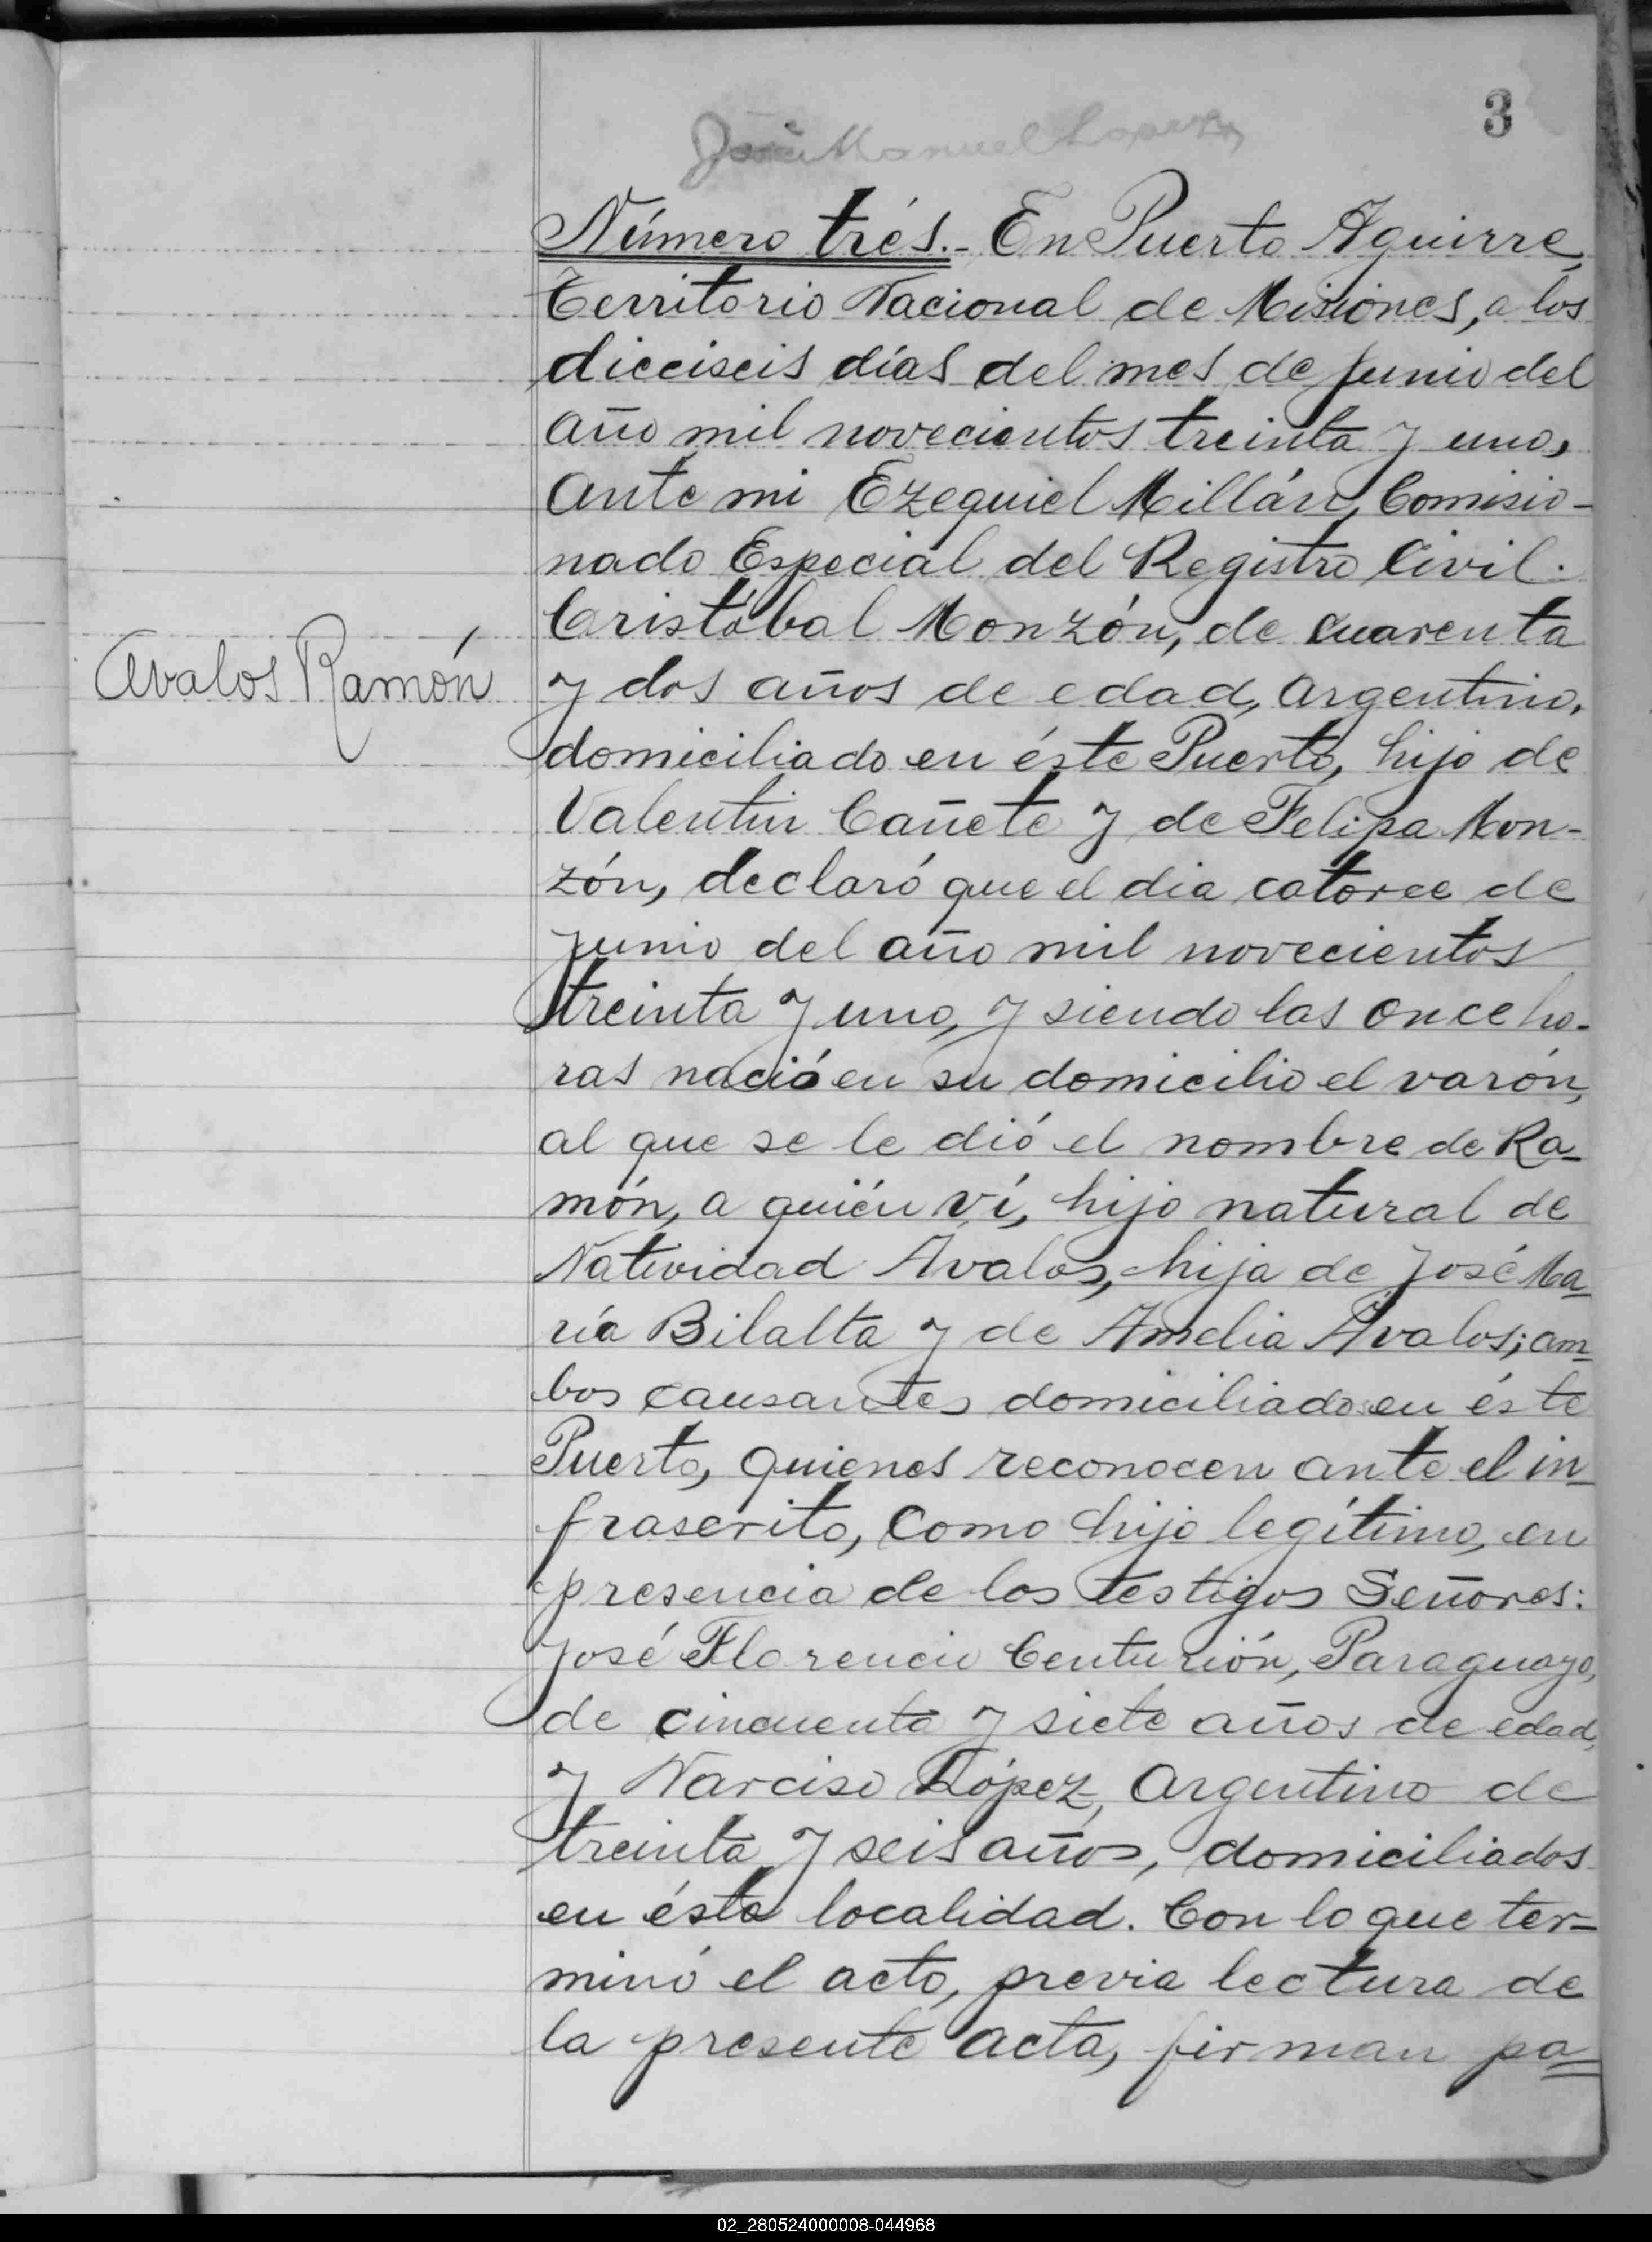 3
José Manuel Lopez
Número trés.- En Puerto Aguirre,
Territorio Nacional de Misiones, a los
dieciseis días del mes de Junio del
año mil novecientos treinta y uno,
ante mi Ezequiel Millán, Comisio-
nado Especial del Registro Civil.
Cristóbal Monzón, de cuarenta
Avalos Ramón
y dos años de edad, argentino,
domiciliado en éste Puerto, hijo de
Valentin Cañete y de Felipa Mon-
zón, declaró que el dia catorce de
Junio del año mil novecientos
treinta y uno, y siendo las once ho-
ras nació en su domicilio el varón,
al que se le dió el nombre de Ra-
món, a quién ví, hijo natural de
Natividad Avalos, hija de José Ma
ría Bilalta y de Amelia Avalos; am
bos causantes domiciliados en éste
Puerto, quienes reconocen ante el in
frascrito, como hijo legítimo, en
presencia de los testigos Señores:
José Florencio Centurión, Paraguayo,
de cincuenta y siete años de edad,
y Narciso López, argentino de
treinta y seis años, domiciliados
en ésta localidad. Con lo que ter-
minó el acto, previa lectura de
la presente acta, firman pa=
02_280524000008-044968